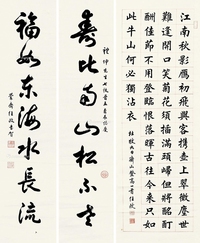 江涵秋影鴈初飛與客攜壺上翠微塵世
難逢開口笑菊花須插滿頭歸但將酩
酊酬佳節不用登臨恨落暉古往今來只如
此牛山何必獨沾衣
杜牧九日齊山登高
壽比南山松不老
福如東海水長流